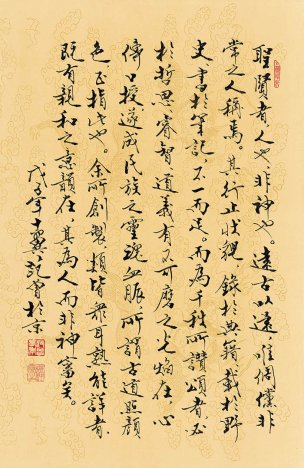 聖賢者人也、非神也。遠古以還、唯倜儻非
常之人稱焉。其行止狀貌、錄於典籍、載於野
史、書於筆記、不一而足。而為千秋所讚頌者、必
於哲思睿智道義有不可磨之光焰在、心
傳口授、遂成民族之靈魂血脈、所謂古道照顏
色正指此也。余所創製類皆眾耳熟能詳者、
既有親和之韻在、其為人而非神審矣。
戊子年十翼范曾於京